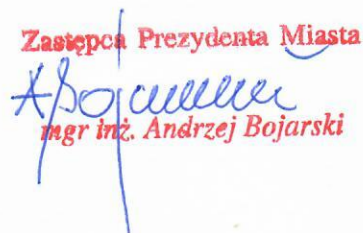 Zastępca Prezydenta Miasta
mgr inż. Andrzej Bojarski